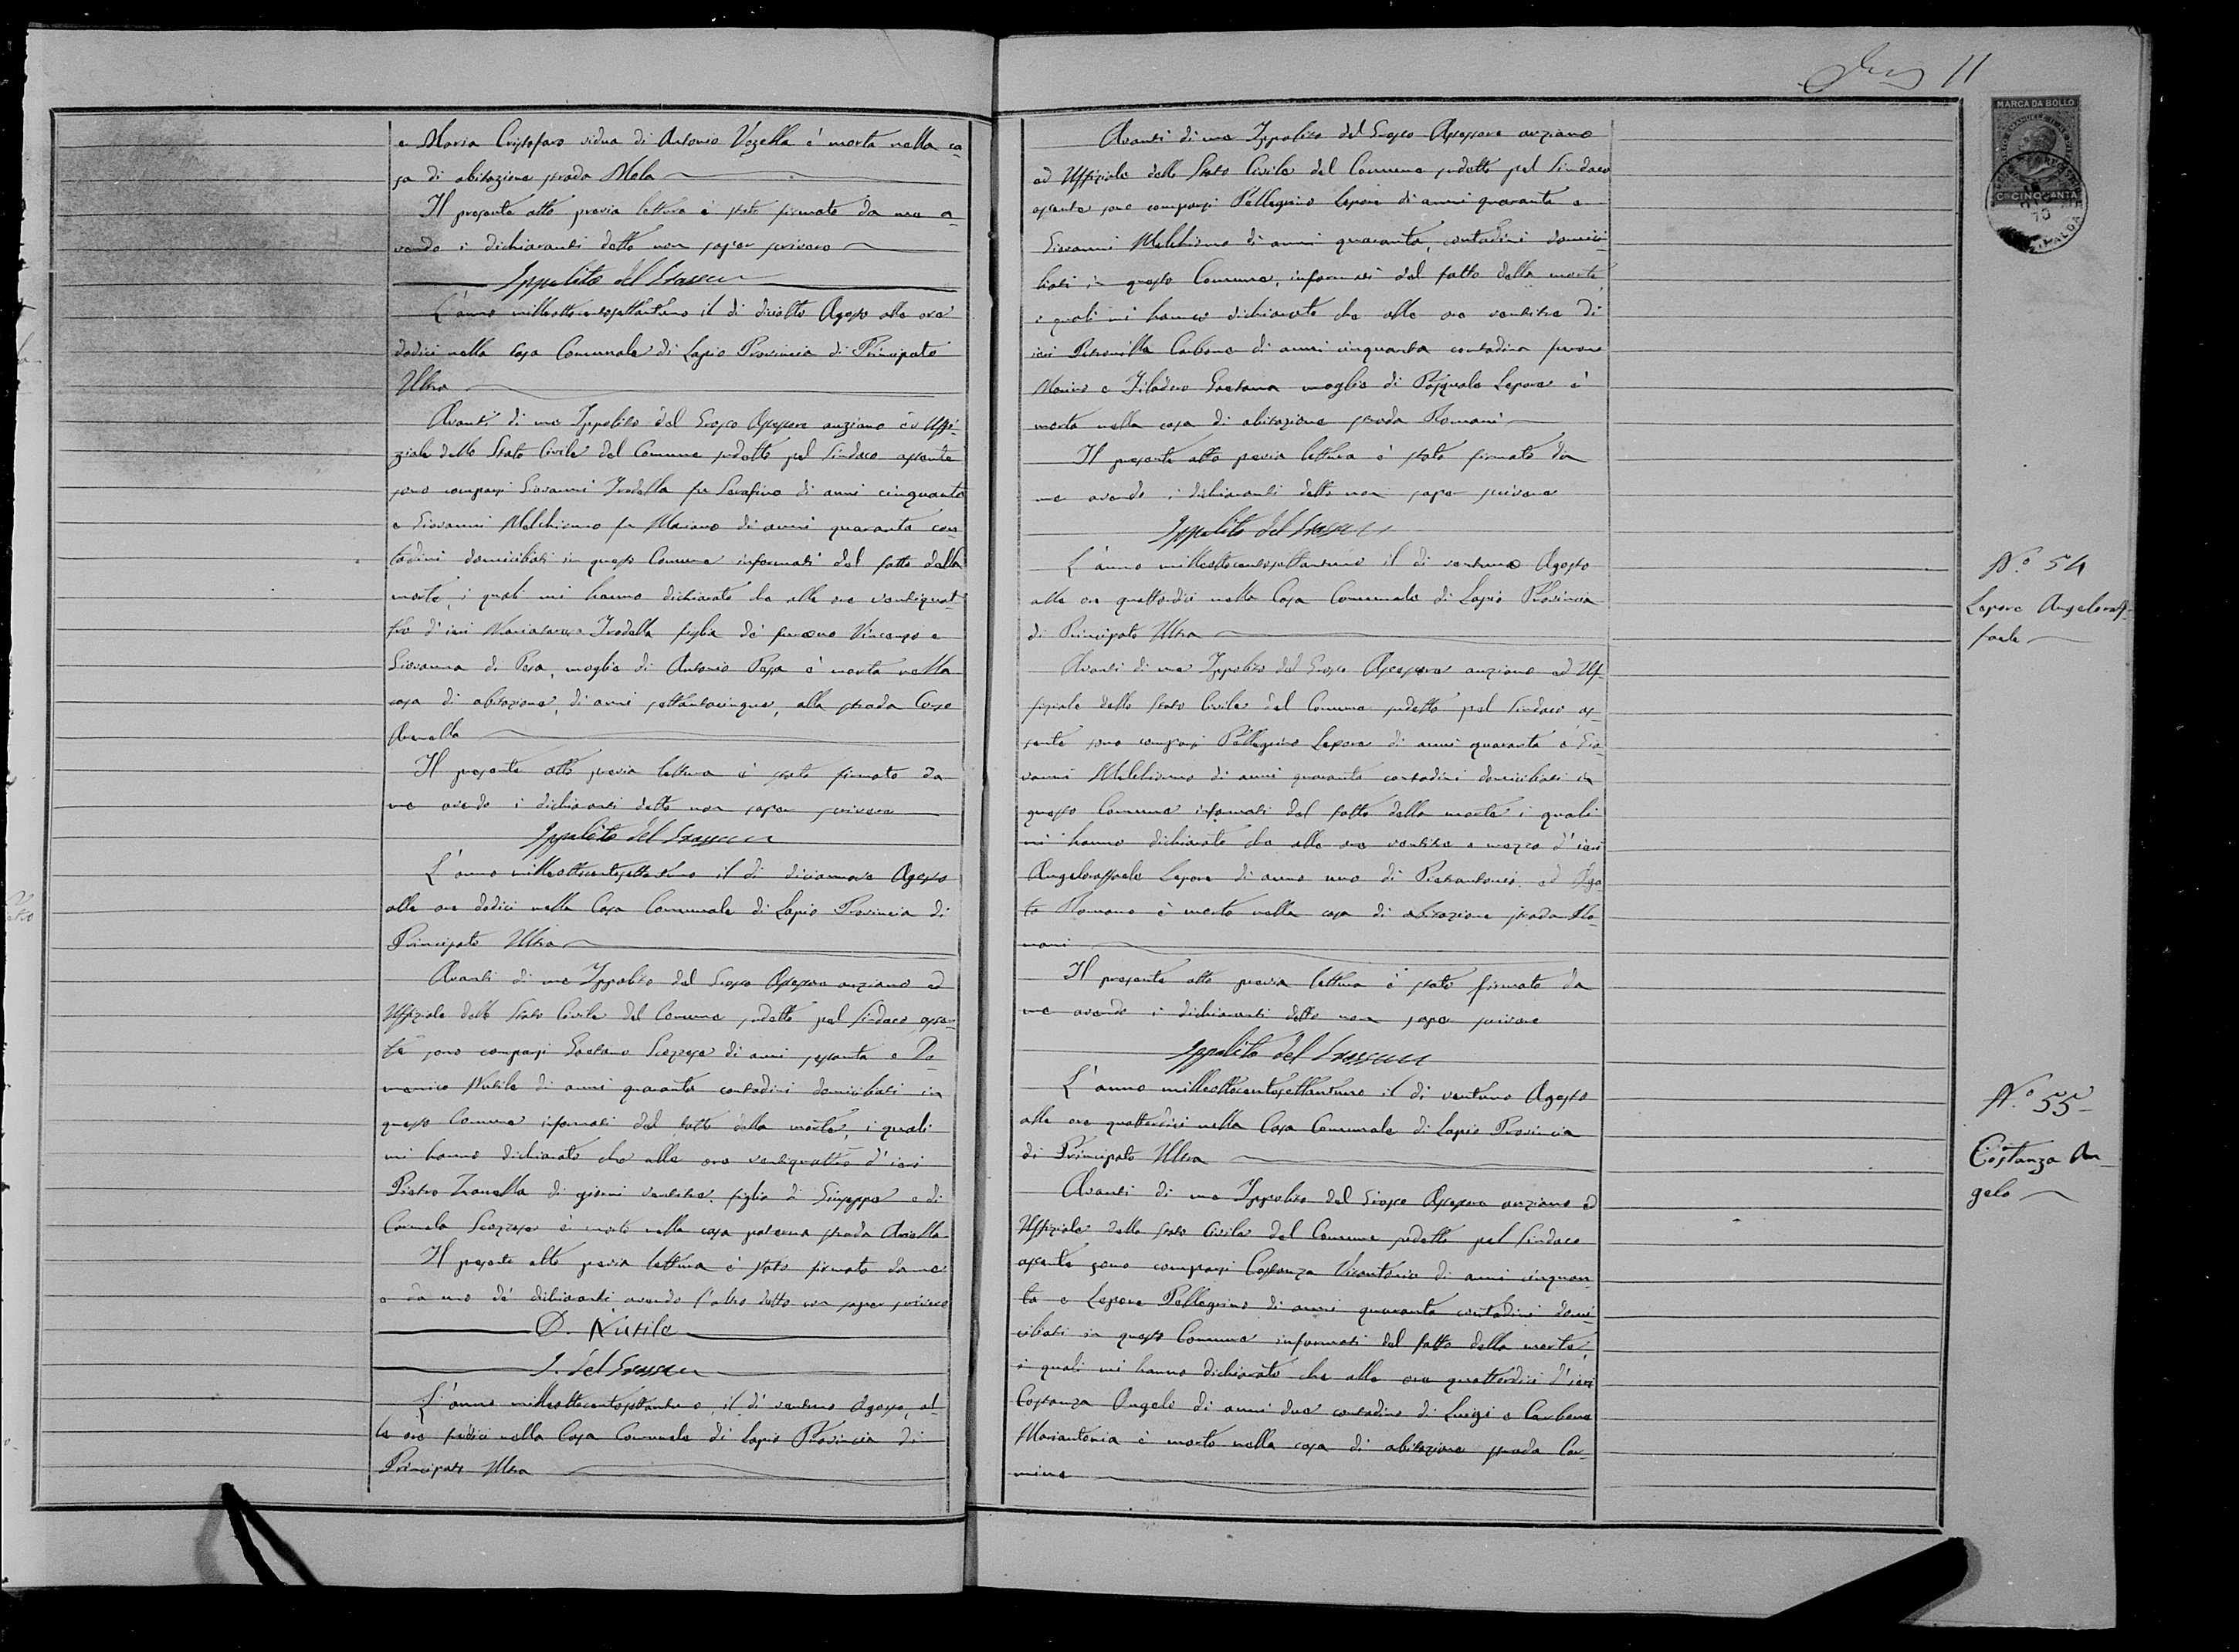 e Maria Cristofaro vidua di Antonio Vozella è morta nella ca-
sa di abitazione strada Mela
Il presente atto previa lettura è stato firmato da me a-
vendo i dichiaranti detto non saper scrivere
Ippolito del Grosso
L'anno milleottocentosettantuno il di diciotto Agosto alle ore
dodici nella Casa Comunale di Lapio Provincia di Principato
Ultra
Avanti di me Ippolito del Grosso Assessore anziano ed Uffi-
ziale dello Stato Civile del Comune sudetto pel Sindaco assente
sono comparsi Giovanni Trodella fu Serafino di anni cinquanta
e Giovanni Melchionno fu Mariano di anni quaranta con-
tadini domiciliati in questo Comune informati del fatto della
morte, i quali mi hanno dichiarato che alle ore ventiquat-
tro d'ieri Trodella figlia de' furono Vincenzo e
Giovanna di Pesa, moglie di Antonio Pesa è morta nella
casa di abitazione, di anni settantacinque, alla strada Corso
Arenella
Il presente atto previa lettura è stato firmato da
me avendo i dichiaranti detto non saper scrivere
Ippolito del Grosso
L'anno milleottocentosettantuno il di diciannove Agosto
alle ore dodici nella Casa Comunale di Lapio Provincia di
Principato Ultra
Avanti di me Ippolito del Grosso Assessore anziano ed
Uffiziale dello Stato Civile del Comune sudetto pel Sindaco assen-
te sono comparsi Gaetano Scozzese di anni sessanta e Do-
menico Nutile di anni quaranta contadini domiciliati in
questo Comune informati del fatto della morte, i quali
mi hanno dichiarato che alle ore ventiquattro d'ieri
Pietro Zanella di giorni ventitre figlio di Giuseppe e di
Carmela Scozzese è morto nella casa paterna strada Ariella
Il presente atto previa lettura è stato firmato da me
e da uno de' dichiaranti avendo l'altro detto non saper scrivere
D. Nutile
I. del Grosso
L'anno milleottocentosettantuno, il di ventuno Agosto, al-
le ore tredici nella Casa Comunale di Lapio Provincia di
Principato Ultra
11
MARCA DA BOLLO
C. CINQUANTA
Avanti di me Ippolito del Grosso Assessore anziano
ed Uffiziale dello Stato Civile del Comune sudetto pel Sindaco
assente sono comparsi Pellegrino Lepore di anni quaranta e
Giovanni Melchionno di anni quaranta, contadini domici-
liati in questo Comune, informati del fatto della morte,
i quali mi hanno dichiarato che alle ore ventitre di
ieri Petronilla Carbone di anni cinquanta contadina furono
Marino e Filadoro Gaetana moglie di Pasquale Lepore è
morta nella casa di abitazione strada Romani
Il presente atto previa lettura è stato firmato da
me avendo i dichiaranti detto non saper scrivere
Ippolito del Grosso
L'anno milleottocentosettantuno il di ventuno Agosto
alle ore quattordici nella Casa Comunale di Lapio Provincia
di Principato Ultra
Avanti di me Ippolito del Grosso Assessore anziano ed Uf-
fiziale dello Stato Civile del Comune sudetto pel Sindaco as-
sente sono comparsi Pellegrino Lepore di anni quaranta e Gio-
vanni Melchionno di anni quaranta contadini domiciliati in
questo Comune informati del fatto della morte i quali
mi hanno dichiarato che alle ore ventitre e mezza d'ieri
Angeloraffaele Lepore di anno uno di Pietrantonio ed Aga-
ta Romano è morto nella casa di abitazione strada Ro-
mani
Il presente atto previa lettura è stato firmato da
me avendo i dichiaranti detto non saper scrivere
Ippolito del Grosso
L'anno milleottocentosettantuno il di ventuno Agosto
alle ore quattordici nella Casa Comunale di Lapio Provincia
di Principato Ultra
Avanti di me Ippolito del Grosso Assessore anziano ed
Uffiziale dello Stato Civile del Comune sudetto pel Sindaco
assente sono comparsi Costanza Vitantonio di anni cinquan-
ta e Lepore Pellegrino di anni quaranta contadini domi-
ciliati in questo Comune informati del fatto della morte,
i quali mi hanno dichiarato che alle ore quattordici d'ieri
Costanza Angelo di anni due contadino di Luigi e Carbone
Mariantonia è morto nella casa di abitazione strada Car-
mine
N.o 54
Lepore Angeloraf-
faele
N.o 55
Costanza An-
gelo